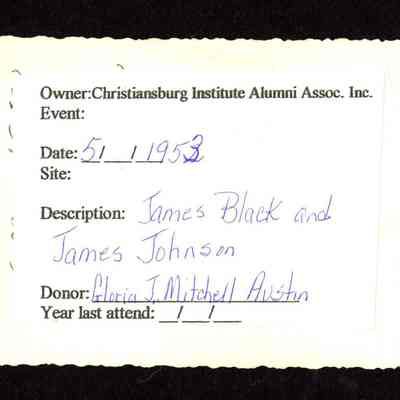 Owner:Christiansburg Institute Alumni Assoc. Inc.
Event:
Date: 5/ / 1953
Site:
Description: James Black and
James Johnson
Donor: Gloria J. Mitchell Austin
Year last attend: __/__/__